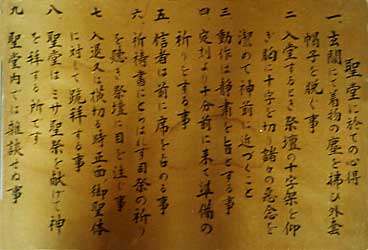 聖堂に於ての心得
一、玄関にて着物の塵を拂ひ外套
帽子を脱ぐ事
二 入堂するとき祭壇の十字架を仰
ぎ胸に十字を切 諸々の悪念を
潔めて神前に近づくこと
三 動作は静粛を旨とする事
四 定刻より十分前に来て準備の
祈りとする事
五 信者は前に席を占める事
六 祈祷書にとらはれず司祭の祈り
を聴き祭壇に目を注ぐ事
七 入退又は横切る時正面御聖体
に対して跪拝する事
八 聖堂はミサ聖祭を献げて神
を拝する所です
九 聖堂内では雑談せぬ事